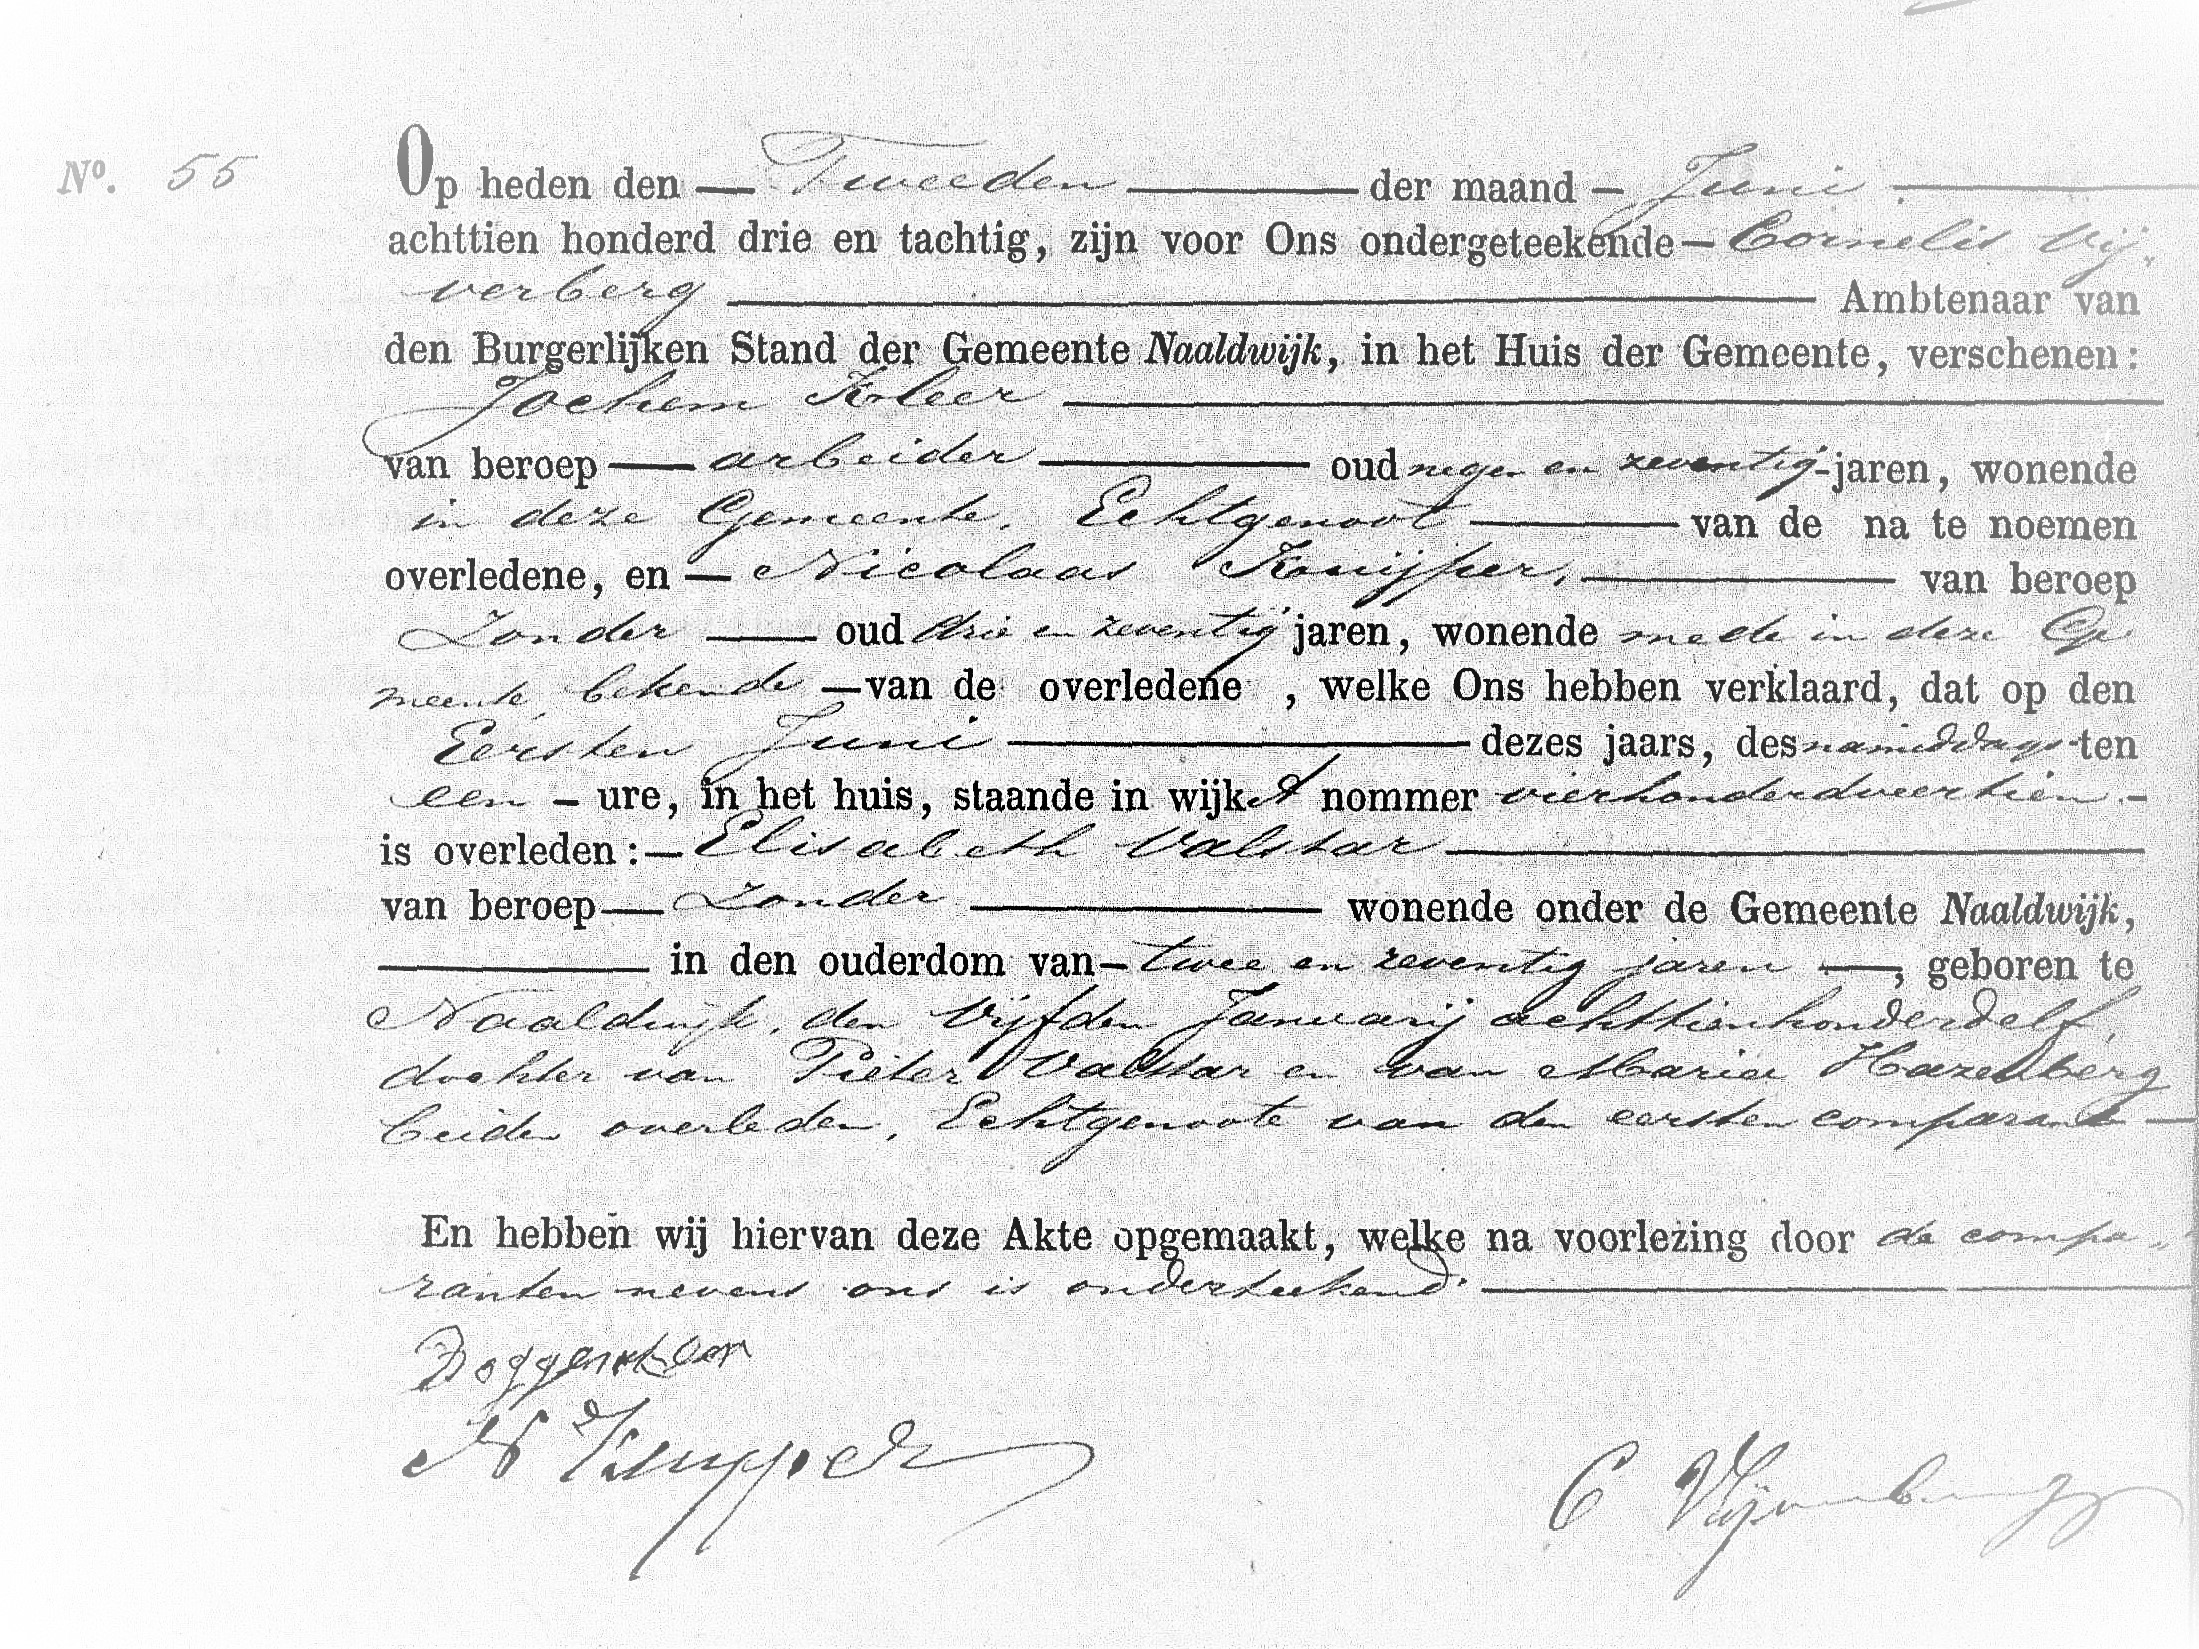 No. 55
Op heden den Tweeden der maand Juni
achttien honderd drie en tachtig, zijn voor Ons ondergeteekende Cornelis Vij-
verberg Ambtenaar van
den Burgerlijken Stand der Gemeente Naaldwijk, in het Huis der Gemeente, verschenen:
Jochem Kleer
van beroep arbeider oud negen en zeventig jaren, wonende
in deze Gemeente, Echtgenoot van de na te noemen
overledene, en Nicolaas Knijper, van beroep
Zonder oud drie en zeventig jaren, wonende mede in deze Ge
meente, bekende van de overledene, welke Ons hebben verklaard, dat op den
Eersten Juni dezes jaars, des namiddags ten
een ure, in het huis, staande in wijk A nommer vierhonderdveertien
is overleden: Elisabeth Valstar
van beroep Zonder wonende onder de Gemeente Naaldwijk,
in den ouderdom van twee en zeventig jaren, geboren te
Naaldwijk, den Vijfden Januarij achttienhonderdelf,
dochter van Pieter Valstar en van Maria Hazelberg
beiden overleden, Echtgenoote van den eersten comparant
En hebben wij hiervan deze Akte opgemaakt, welke na voorlezing door de compa-
ranten nevens ons is onderteekend.
C Vijverberg